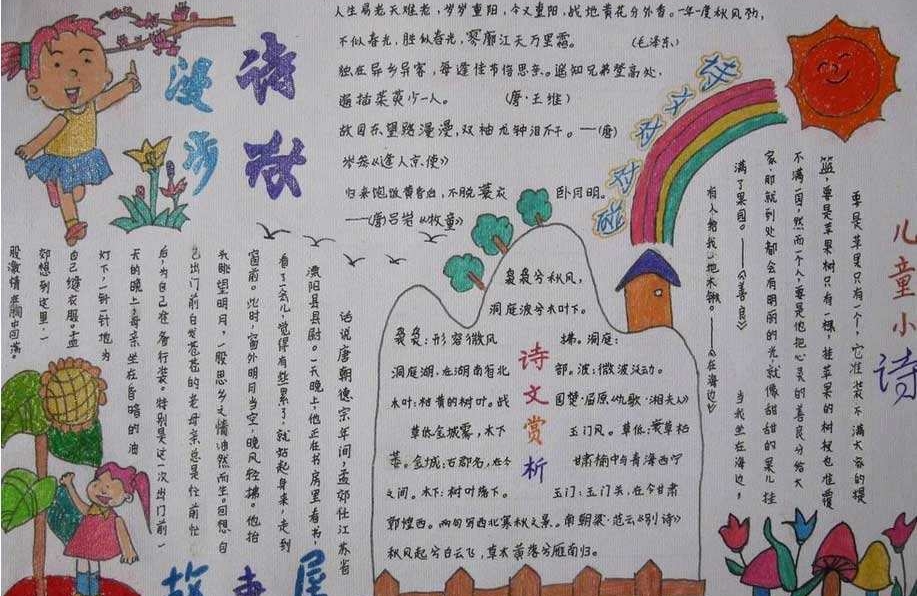 漫步
诗歌
人生易老天难老，岁岁重阳，今又重阳，战地黄花分外香。一年一度秋风劲，
不似春光，胜似春光，寥廓江天万里霜。（毛泽东）
独在异乡异客，每逢佳节倍思亲。遥知兄弟登高处，
遍插茱萸少一人。（唐·王维）
故园东望路漫漫，双袖龙钟泪不干。——（唐）
岑参《逢人京使》
归来饱饭黄昏后，不脱蓑衣卧月明。
——（唐吕岩《牧童》
儿童小诗
要是苹果只有一个，它准装不满大家的提
篮，要是苹果树只有一棵，挂苹果的树杈也准覆
不满一园，然而一个人，要是他把心灵的善良分给大
家，那就到处都会有明丽的光，就像甜甜的果儿挂
满了果园。——《善良》当我坐在海边，
有人给我一把木锹——《在海边》
袅袅兮秋风，
洞庭波兮木叶下。
诗文赏析
袅袅：形容微风
拂。洞庭：
洞庭湖，在湖南省北
部。波：微波泛动。
木叶：枯黄的树叶。战
国楚·屈原《九歌·湘夫人》
草低金城雾，木下
玉门风。草低：衰草枯
萎。金城：古郡名，在今
甘肃榆中与青海西宁
之间。木下：树叶落下。
玉门：玉门关，在今甘肃
敦煌西。两句写西北寒秋之景。南朝梁·范云《别诗》
秋风起兮白云飞，草木黄落兮雁南归。
故事屋
话说唐朝德宗年间，孟郊任江苏省
溧阳县县尉。一天晚上，他正在书房里看书，
看了一会儿，觉得有些累了，就站起身来，走到
窗前。此时，窗外明月当空，晚风轻拂。他抬
头眺望明月，一股思乡之情油然而生。回想自
己出门前白发苍苍的老母亲总是任前忙
后，为自己准备行装。特别是这一次出门前一
天的晚上，母亲坐在昏暗的油
灯下，一针一针地为
自己缝衣服。孟
郊想到这里，一
股激情在胸中回荡。